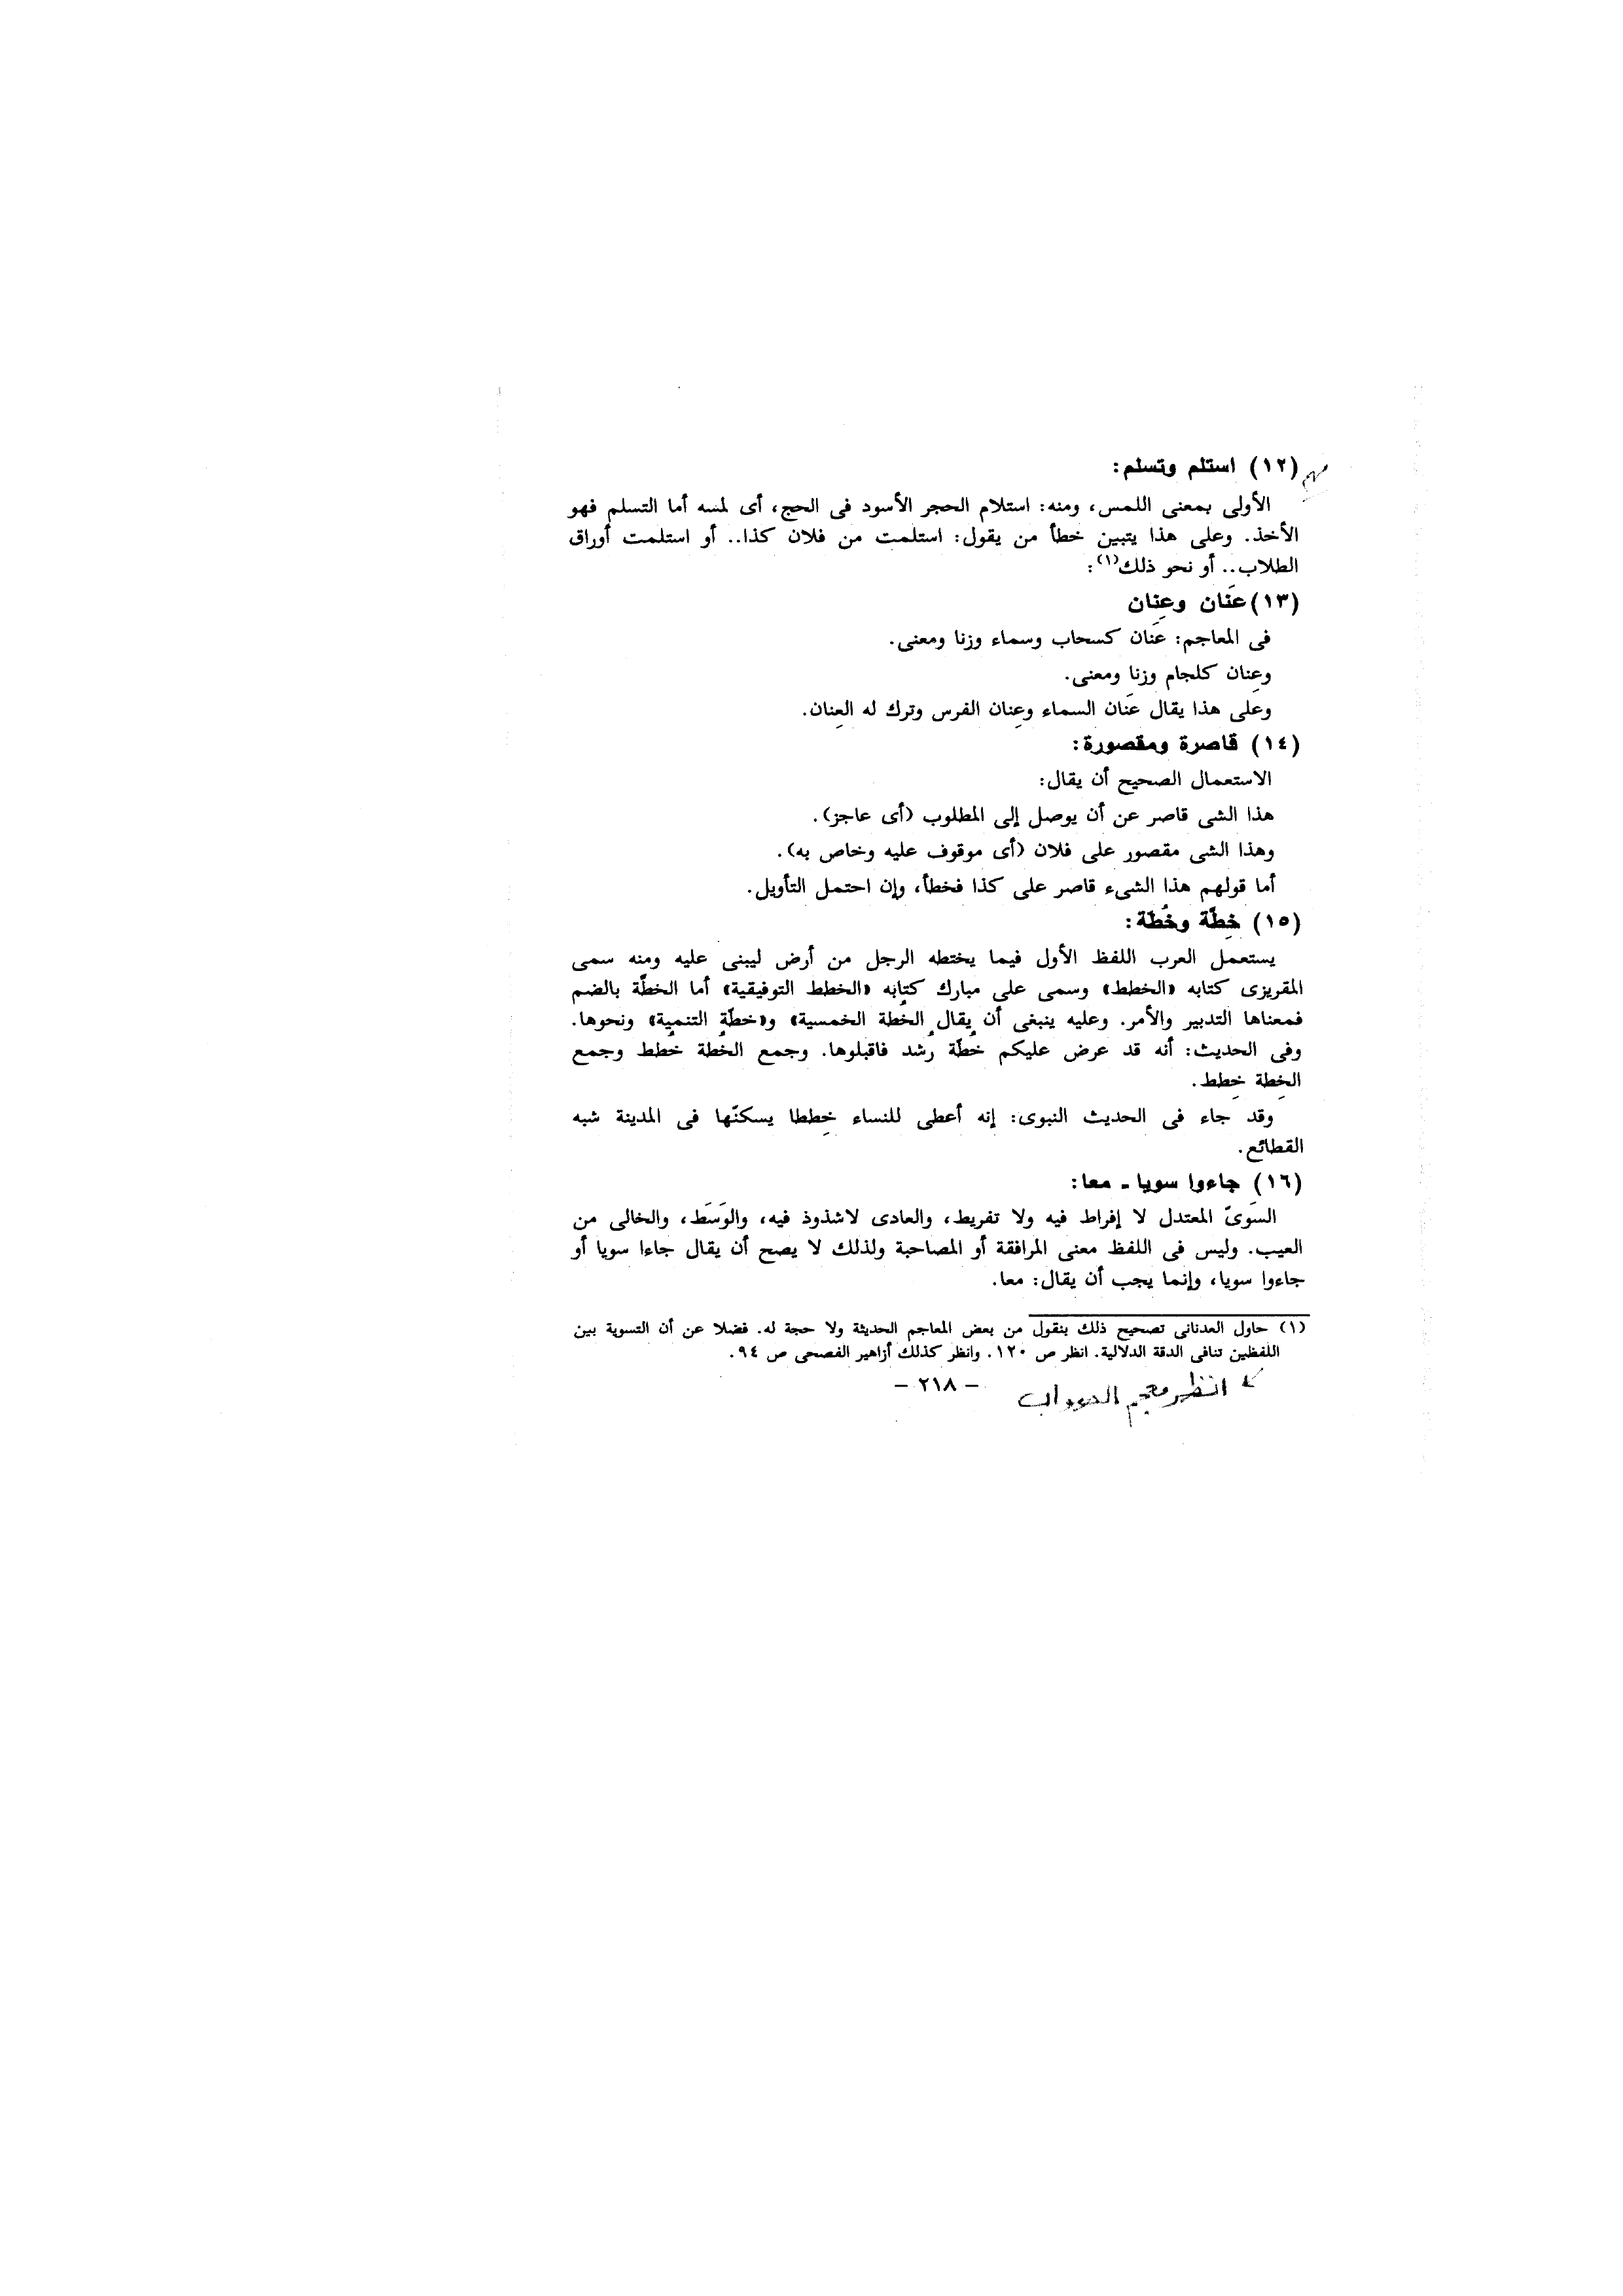 (١٢) استلم وتسلم:
الأولى بمعنى اللمس، ومنه: استلام الحجر الأسود فى الحج، أى لمسه أما التسلم فهو
الأخذ. وعلى هذا يتبين خطأ من يقول: استلمت من فلان كذا.. أو استلمت أوراق
الطلاب.. أو نحو ذلك(١):
(١٣) عَنان وعِنان
فى المعاجم: عَنان كسحاب وسماء وزنا ومعنى.
وعِنان كلجام وزنا ومعنى.
وعلى هذا يقال عَنان السماء وعِنان الفرس وترك له العِنان.
(١٤) قاصرة ومقصورة:
الاستعمال الصحيح أن يقال:
هذا الشى قاصر عن أن يوصل إلى المطلوب (أى عاجز).
وهذا الشى مقصور على فلان (أى موقوف عليه وخاص به).
أما قولهم هذا الشىء قاصر على كذا فخطأ، وإن احتمل التأويل.
(١٥) خِطّة وخُطّة:
يستعمل العرب اللفظ الأول فيما يختطه الرجل من أرض ليبنى عليه ومنه سمى
المقريزى كتابه «الخطط» وسمى على مبارك كتابه «الخطط التوفيقية» أما الخطّة بالضم
فمعناها التدبير والأمر. وعليه ينبغى أن يقال الخُطة الخمسية» و«خطّة التنمية» ونحوها.
وفى الحديث: أنه قد عرض عليكم خُطّة رُشد فاقبلوها. وجمع الخُطة خُطط وجمع
الخِطة خِطط.
وقد جاء فى الحديث النبوى: إنه أعطى للنساء خِططا يسكنّها فى المدينة شبه
القطائع.
(١٦) جاءوا سويا ـ معا:
السَوىّ المعتدل لا إفراط فيه ولا تفريط، والعادى لاشذوذ فيه، والوَسَط، والخالى من
العيب. وليس فى اللفظ معنى المرافقة أو المصاحبة ولذلك لا يصح أن يقال جاءا سويا أو
جاءوا سويا، وإنما يجب أن يقال: معا.
(١) حاول العدنانى تصحيح ذلك بنقول من بعض المعاجم الحديثة ولا حجة له. فضلا عن أن التسوية بين
اللفظين تنافى الدقة الدلالية. انظر ص ١٢٠. وانظر كذلك أزاهير الفصحى ص ٩٤.
انظر معجم الصواب
– ٢١٨ –